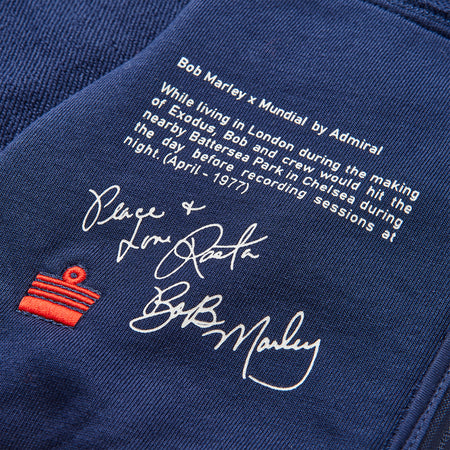 Bob Marley x Mundial by Admiral
While living in London during the making
of Exodus, Bob and crew would hit the
nearby Battersea Park in Chelsea during
the day, before recording sessions at
night. (April - 1977)
Peace &
Love Rasta
Bob Marley